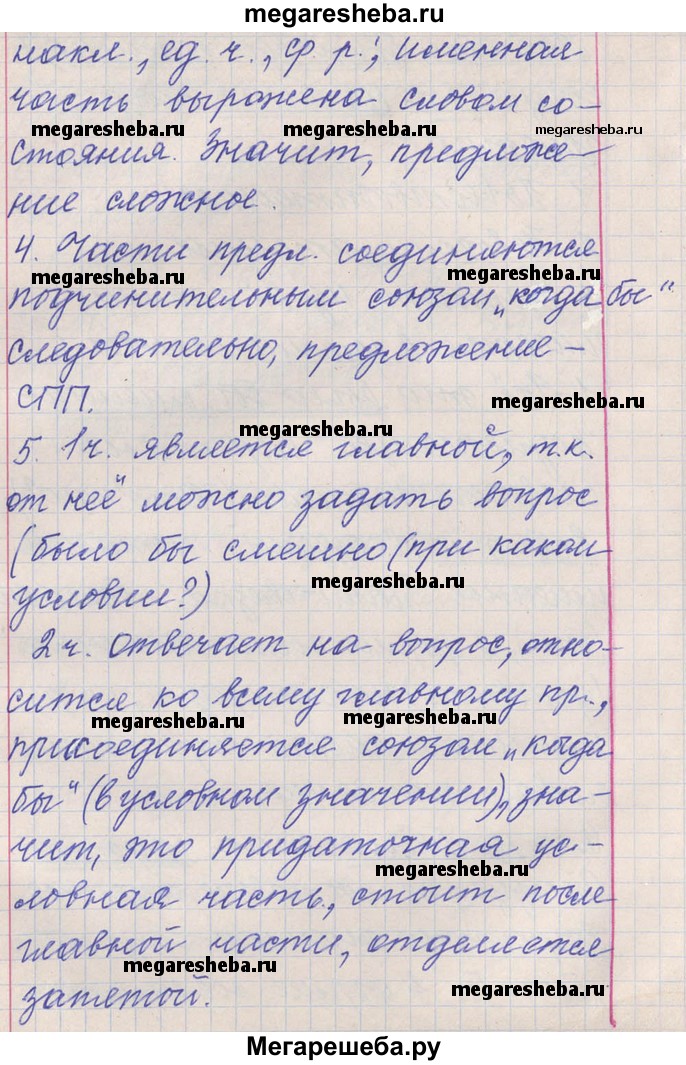 megaresheba.ru
накл., ед. ч., ср. р.; именная
часть выражена словом со-
megaresheba.ru megaresheba.ru megaresheba.ru
стояния. Значит, предложе-
ние сложное.
4. Части предл. соединяются
megaresheba.ru megaresheba.ru
подчинительным союзом „когда бы“
следовательно, предложение –
СПП.
megaresheba.ru
5. 1ч. является главной, т.к.
от неё можно задать вопрос
(было бы смешно (при каком
megaresheba.ru
условии?)
2 ч. отвечает на вопрос, отно-
сится ко всему главному пр.,
megaresheba.ru megaresheba.ru
присоединяется союзом „когда
бы“ (в условном значении), зна-
чит, это придаточная ус-
megaresheba.ru
ловная часть, стоит после
главной части, отделяется
megaresheba.ru
запятой.
megaresheba.ru
Мегарешеба.ру